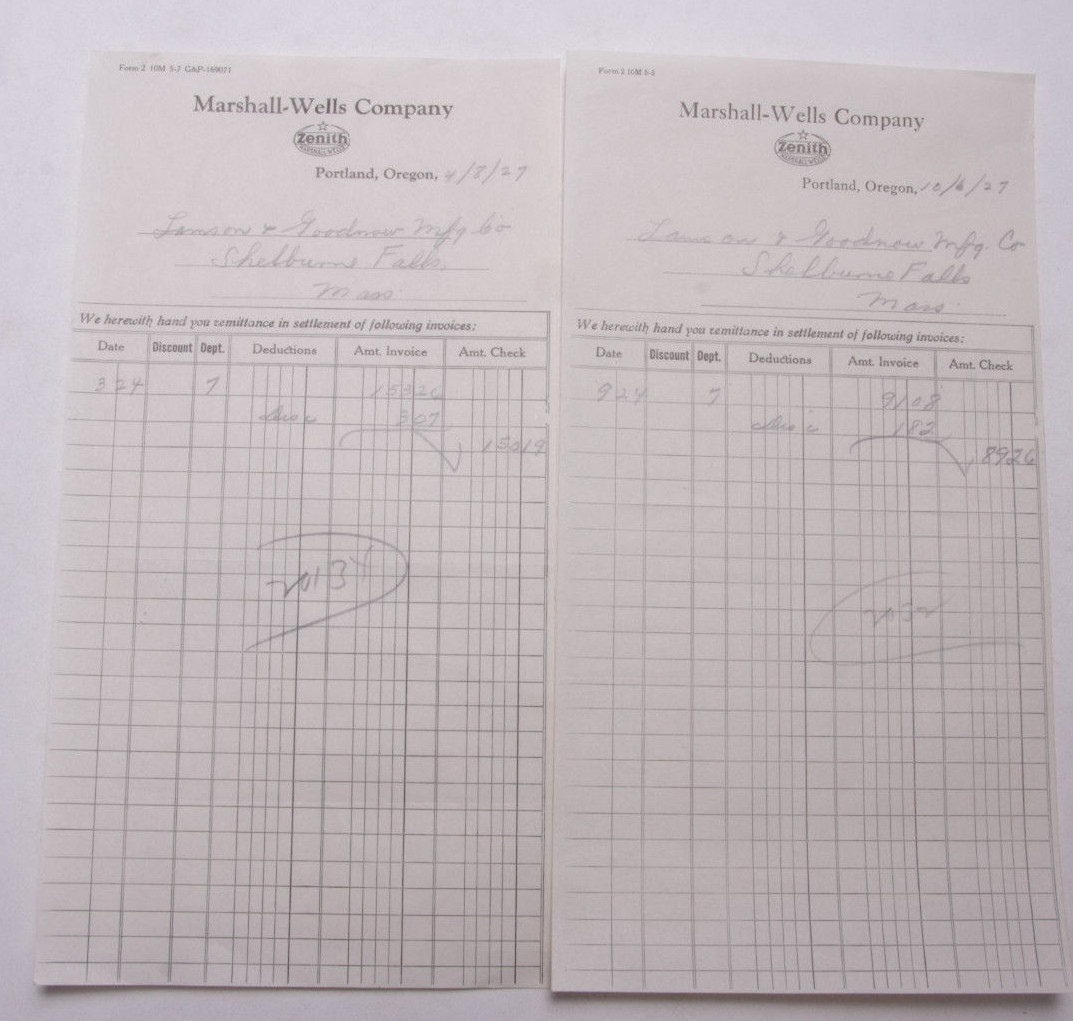 Form 2 10M 5-7 G&P-169071
Marshall-Wells Company
Zenith
MARSHALL-WELLS
Portland, Oregon, 4/8/27
Lamson & Goodnow Mfg Co
Shelburne Falls,
Mass.
We herewith hand you remittance in settlement of following invoices:
Date Discount Dept. Deductions Amt. Invoice Amt. Check
3 24 7 15326
disc 307
15019
Form 2 10M
Marshall-Wells Company
Zenith
MARSHALL-WELLS
Portland, Oregon, 10/6/27
Lamson & Goodnow Mfg. Co
Shelburne Falls
Mass.
We herewith hand you remittance in settlement of following invoices:
Date Discount Dept. Deductions Amt. Invoice Amt. Check
9 24 7 9108
disc 182
8926